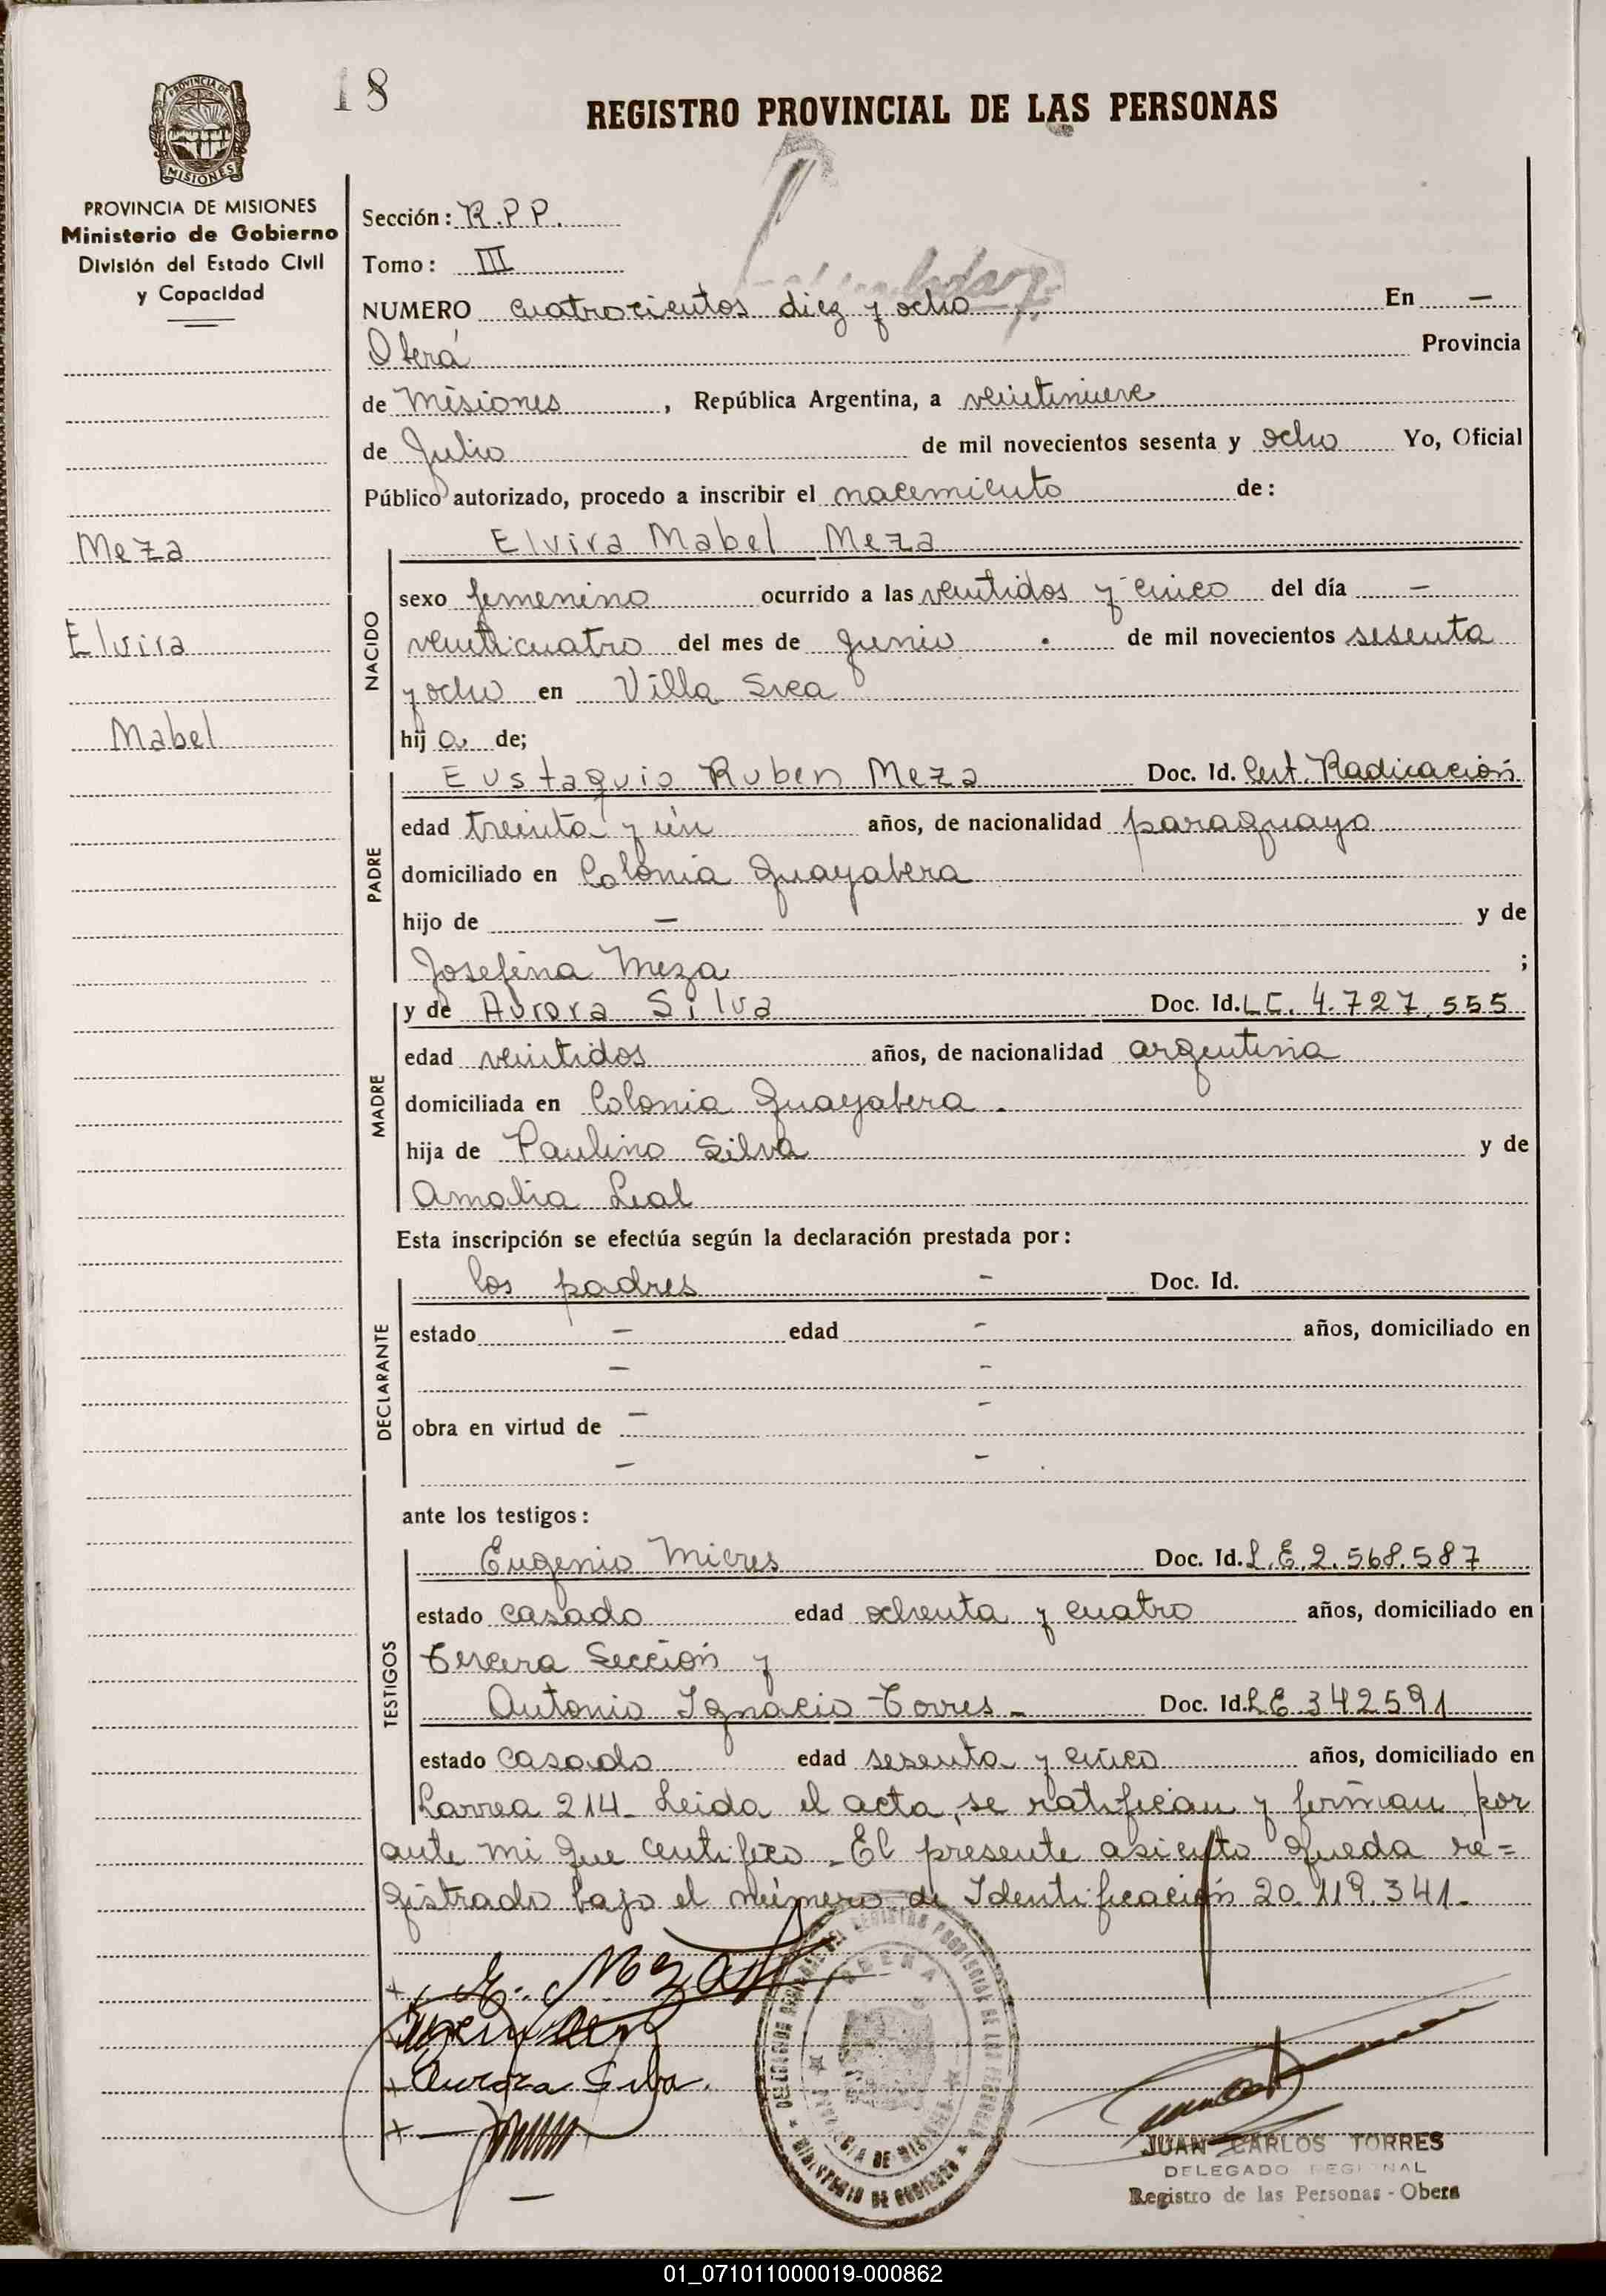 18
REGISTRO PROVINCIAL DE LAS PERSONAS
PROVINCIA DE
MISIONES
PROVINCIA DE MISIONES
Ministerio de Gobierno
División del Estado Civil
y Capacidad
Meza
Elvira
Mabel
Sección: R.P.P.
Tomo: III
NUMERO cuatrocientos diez y ocho En —
Oberá Provincia
de Misiones, República Argentina, a veintinueve
de Julio de mil novecientos sesenta y ocho Yo, Oficial
Público autorizado, procedo a inscribir el nacemiento de:
Elvira Mabel Meza
NACIDO
sexo femenino ocurrido a las veintidos y cinco del día —
veinticuatro del mes de Junio . de mil novecientos sesenta
y ocho en Villa Svea
hij a de;
PADRE
Eustaquio Ruben Meza Doc. Id. Cert. Radicación
edad treinta y un años, de nacionalidad paraguayo
domiciliado en Colonia Guayabera
hijo de — y de
Josefina Meza ;
MADRE
y de Aurora Silva Doc. Id. LC. 4.727.555
edad veintidos años, de nacionalidad argentina
domiciliada en Colonia Guayabera.
hija de Paulino Silva y de
Amalia Leal
Esta inscripción se efectúa según la declaración prestada por:
DECLARANTE
los padres — Doc. Id.
estado — edad — años, domiciliado en
— —
obra en virtud de — —
— —
ante los testigos:
TESTIGOS
Eugenio Mieres Doc. Id. L.E. 2.568.587
estado casado edad ochenta y cuatro años, domiciliado en
Tercera Sección y
Antonio Ignacio Torres - Doc. Id. LE 342591
estado casado edad sesenta y cinco años, domiciliado en
Larrea 214- Leida el acta, se ratifican y firman por
ante mi que certifico - El presente asiento queda re=
gistrado bajo el número de Identificación 20.119.341-
E. Meza
Aurora Silva.
OBERA
PROVINCIA DE MISIONES
MINISTERIO DE GOBIERNO
JUAN CARLOS TORRES
DELEGADO REGIONAL
Registro de las Personas - Obera
01_071011000019-000862